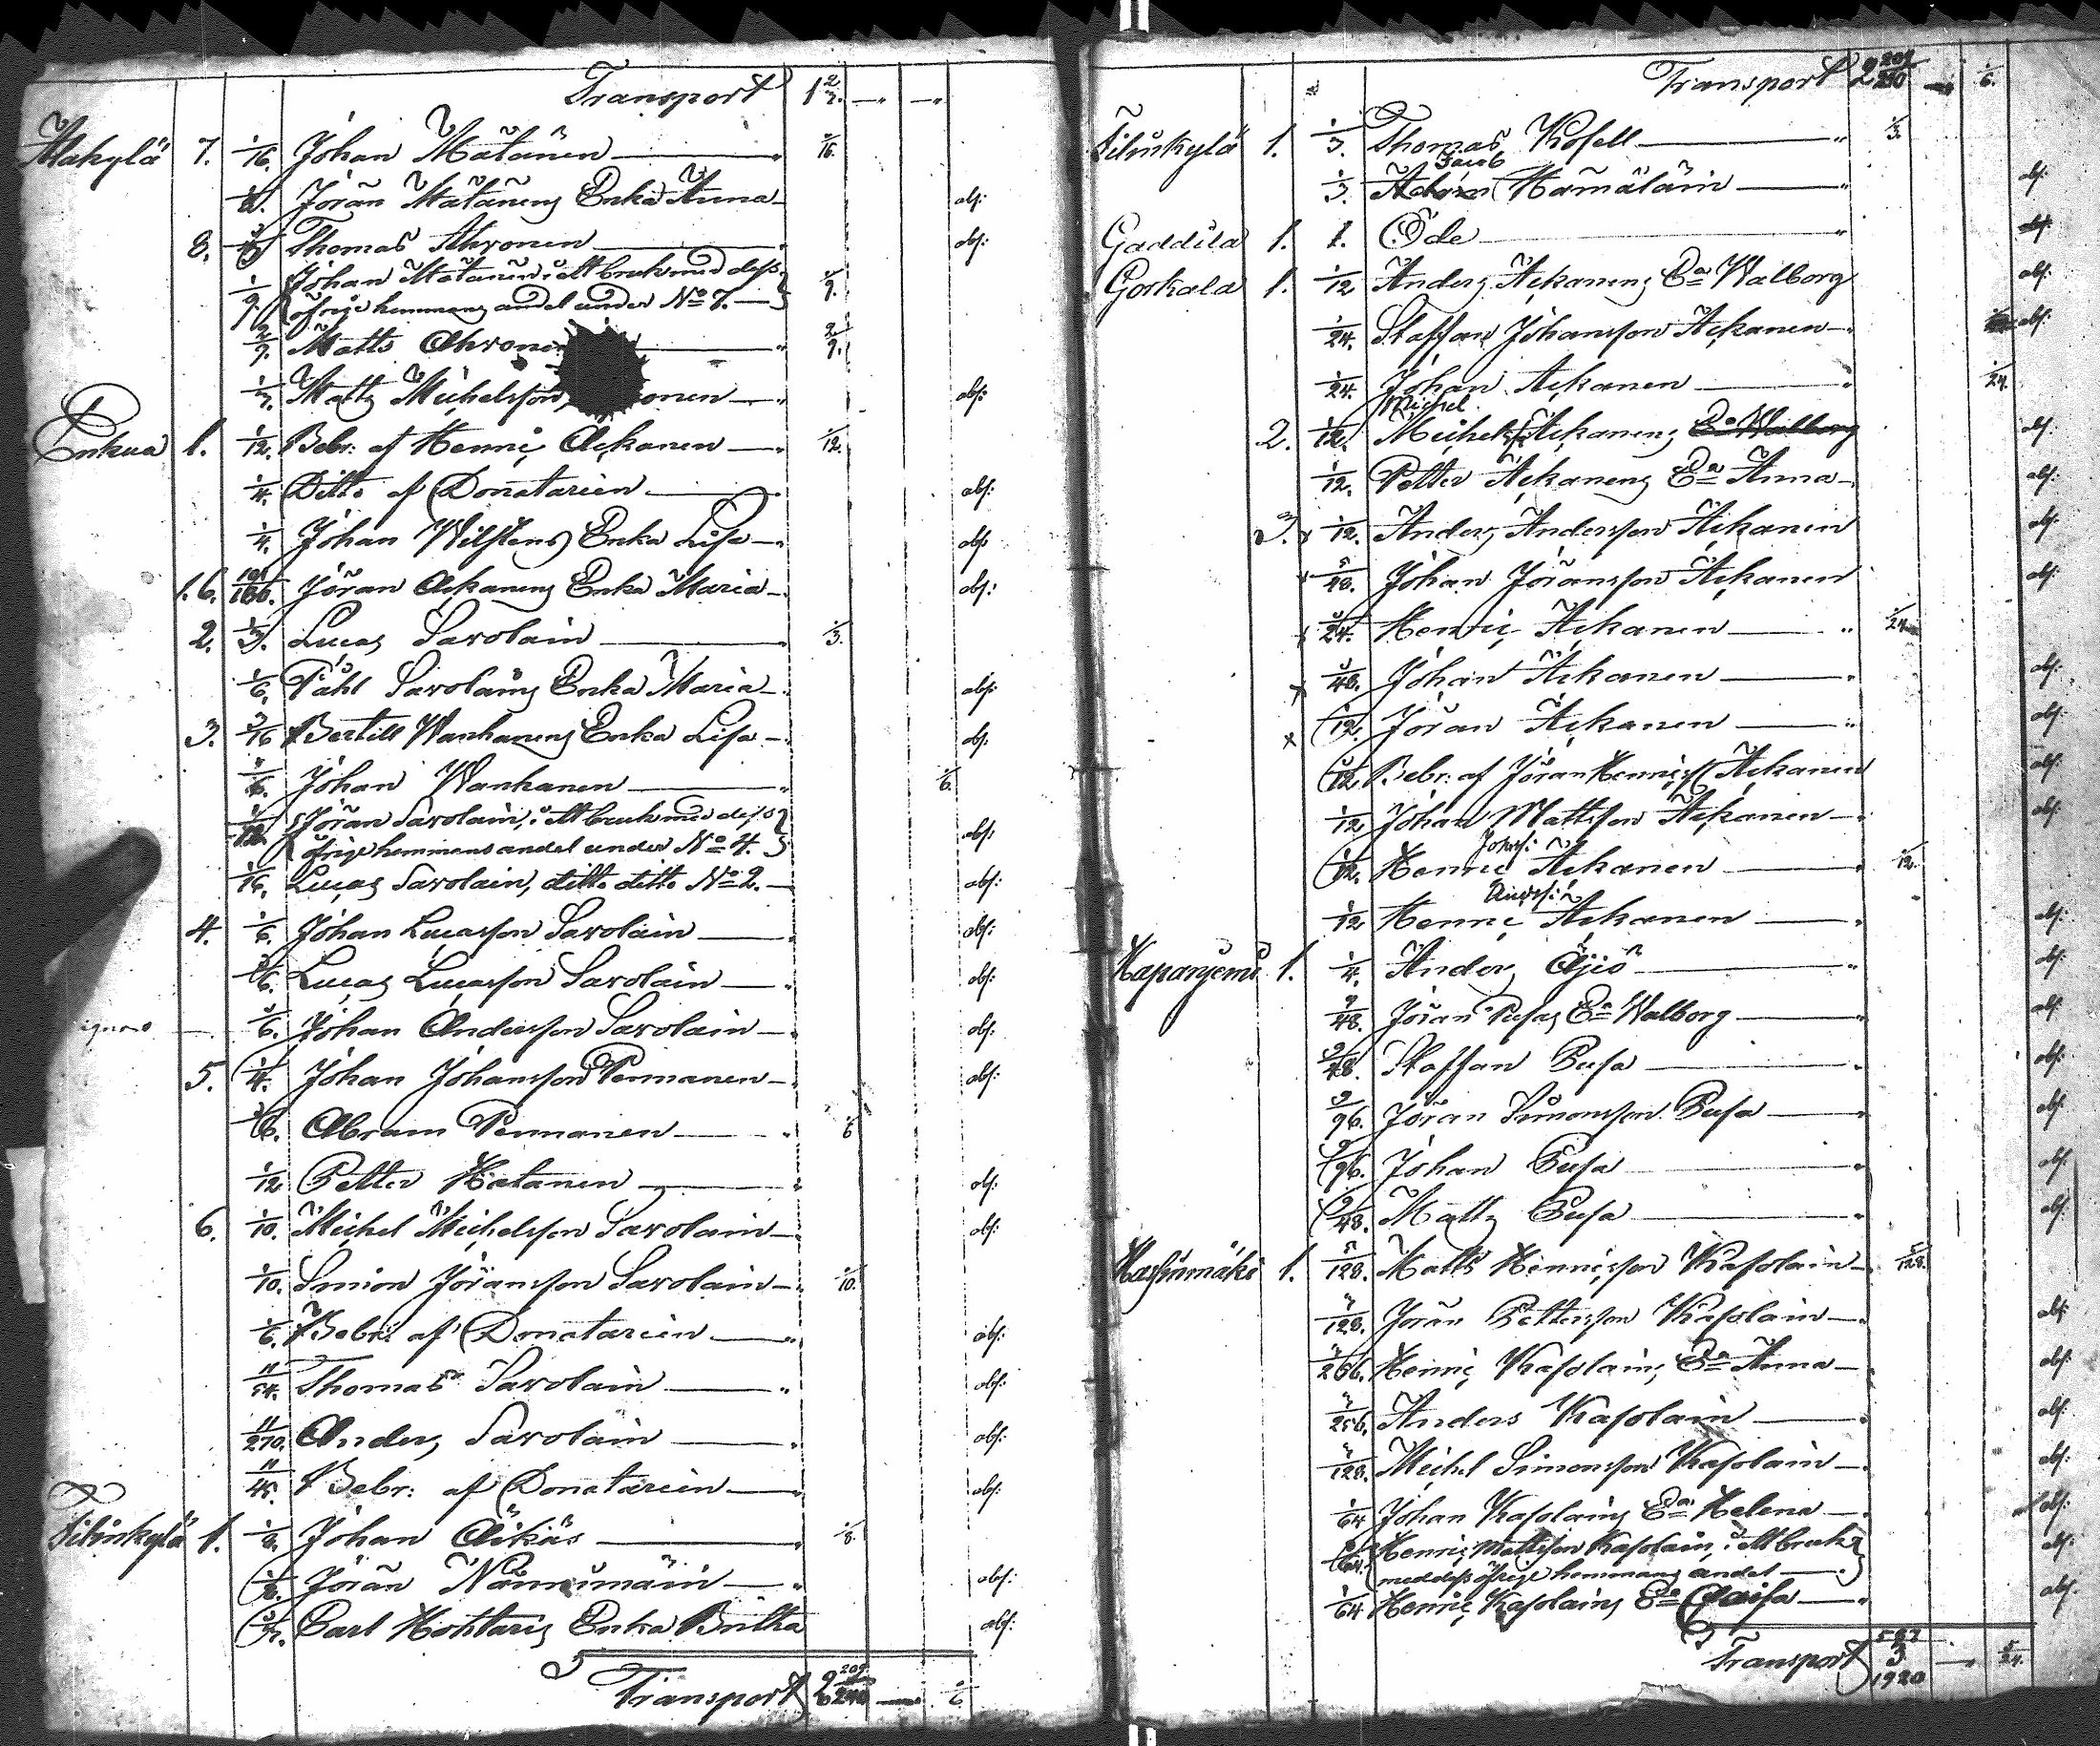 Transport 1 2/7. — —
Makylä 7. 1/16. Johan Mätänen — 1/16.
Jöran Mätänens Enka Anna — abs:
8. Thomas Ahvonen — abs:
1/9. Johan Mätänen, i ett bruk med dess 1/9.
öfrige hemmans andel under No 7. —
2/9. Matts Ahvonen — 2/9.
Matts Michelsson — abs:
Enkua 1. 1/12. Bebr: af Henric Ackanen — 1/12.
1/4. Ditto af Donatarien — abs:
1/4. Johan Wilskens Enka Lisa — abs:
1.6. Jöran Ackanens Enka Maria — abs:
2. 1/3. Lucas Savolain — 1/3.
1/6. Påhl Savolains Enka Maria — abs:
3. 3/16 Bertill Wanhanens Enka Lisa — abs:
Johan Wanhanen — 1/6.
Jöran Savolain, i ett bruk med dess
öfrige hemmans andel under No 4. abs:
1/16. Lucas Savolain, ditto ditto No 2. — abs:
4. 1/6. Johan Lucasson Savolain — abs:
1/6. Lucas Lucasson Savolain — abs:
1/6. Johan Andersson Savolain — abs:
5. 1/4. Johan Johansson Penmanen — abs:
1/6. Abram Penmanen — 1/6
1/12 Petter Hatanen — abs:
6. 1/10. Michel Michelsson Savolain — abs:
1/10. Simon Jöransson Savolain — 1/10.
1/6. Bebr: af Donatarien — abs:
11/54. Thomas Savolain — abs:
11/270. Anders Savolain — abs:
11/45. Bebr: af Donatarien — abs:
Tilinkylä 1. 1/8. Johan Äikäs — 1/8.
1/8. Jöran Närvumäin — abs:
Carl Hohtaris Enka Britha abs:
Transport 2 209/240 — 1/6
Transport 2 209/240 — 1/6.
Tilinkylä 1. 1/3. Thomas Kofell — 1/3.
Jacob
1/3. Hämäläin — abs:
Gaddila 1. 1. Öde — abs:
Gorkala 1. 1/12 Anders Ackanens Ea Walborg abs:
1/24. Staffan Johansson Ackanen — abs:
1/24. Johan Ackanen — 1/24.
Michel
2. 1/12. Michels Ackanens Ea Walborg abs:
1/12. Petter Ackanens Ea Anna — abs:
3. x 1/12. Anders Andersson Äckanen abs:
x 5/48. Johan Jöransson Äckanen abs:
x 1/24. Henric Äckanen — 1/24
x 1/48. Johan Äckanen — abs:
x 1/12. Jöran Äckanen — abs:
1/12. Bebr: af Jöran Henricss: Äckanen abs:
1/12 Johan Mattsson Äckanen — abs:
Johss:
1/12. Henric Äckanen — 1/12.
Anderss:
1/12 Henric Äckanen — abs:
Kapanjemi 1. 1/4. Anders Äijö — abs:
9/48. Jöran Pusas Ea Walborg — abs:
9/48. Staffan Pusa — abs:
9/96. Jöran Simonsson Pusa — abs:
9/96. Johan Pusa — abs:
9/48. Matts Pusa — abs:
1. 5/128. Matts Henricsson Kasolain — 5/128.
7/128. Jöran Pettersson Kasolain — abs:
7/256. Henric Kasolains Ea Anna — abs:
7/256. Anders Kasolain — abs:
7/128. Michel Simonsson Kasolain — abs:
1/64 Johan Kasolains Ea Helena — abs:
Henric Mattsson Kasolain, i ett bruk abs:
med dess öfrige hemmans andel —
1/64 Henric Kasolains Ea Caisa — abs:
Transport 3 587/1920 — 5/24.